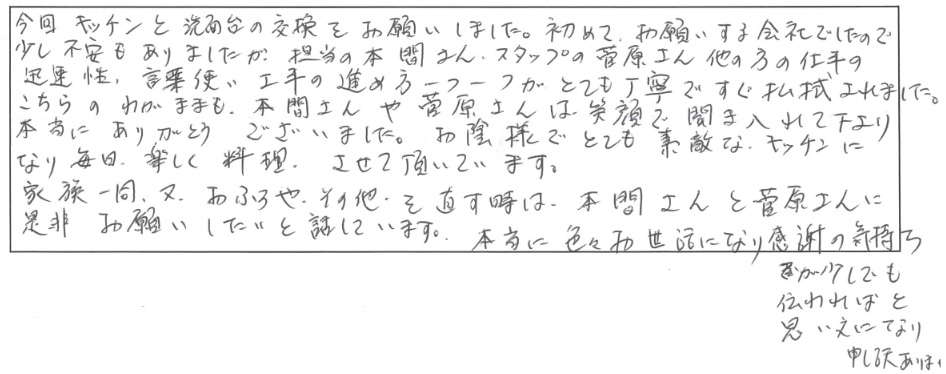 今回 キッチンと洗面台の交換をお願いしました。初めてお願いする会社でしたので
少し不安もありましたが、担当の本間さん、スタッフの菅原さん他の方の仕事の
迅速性、言葉使い、工事の進め方一つ一つがとても丁寧ですぐ払拭されました。
こちらのわがままも、本間さんや菅原さんは笑顔で聞き入れて下より
本当にありがとうございました。お陰様でとても素敵なキッチンに
なり毎日、楽しく料理、させて頂いています。
家族一同、又、おふろや、その他、を直す時は、本間さんと菅原さんに
是非お願いしたいと話しています。本当に色々お世話になり感謝の気持ち
が少しでも
伝わればと
思い文になり
申し訳ありま